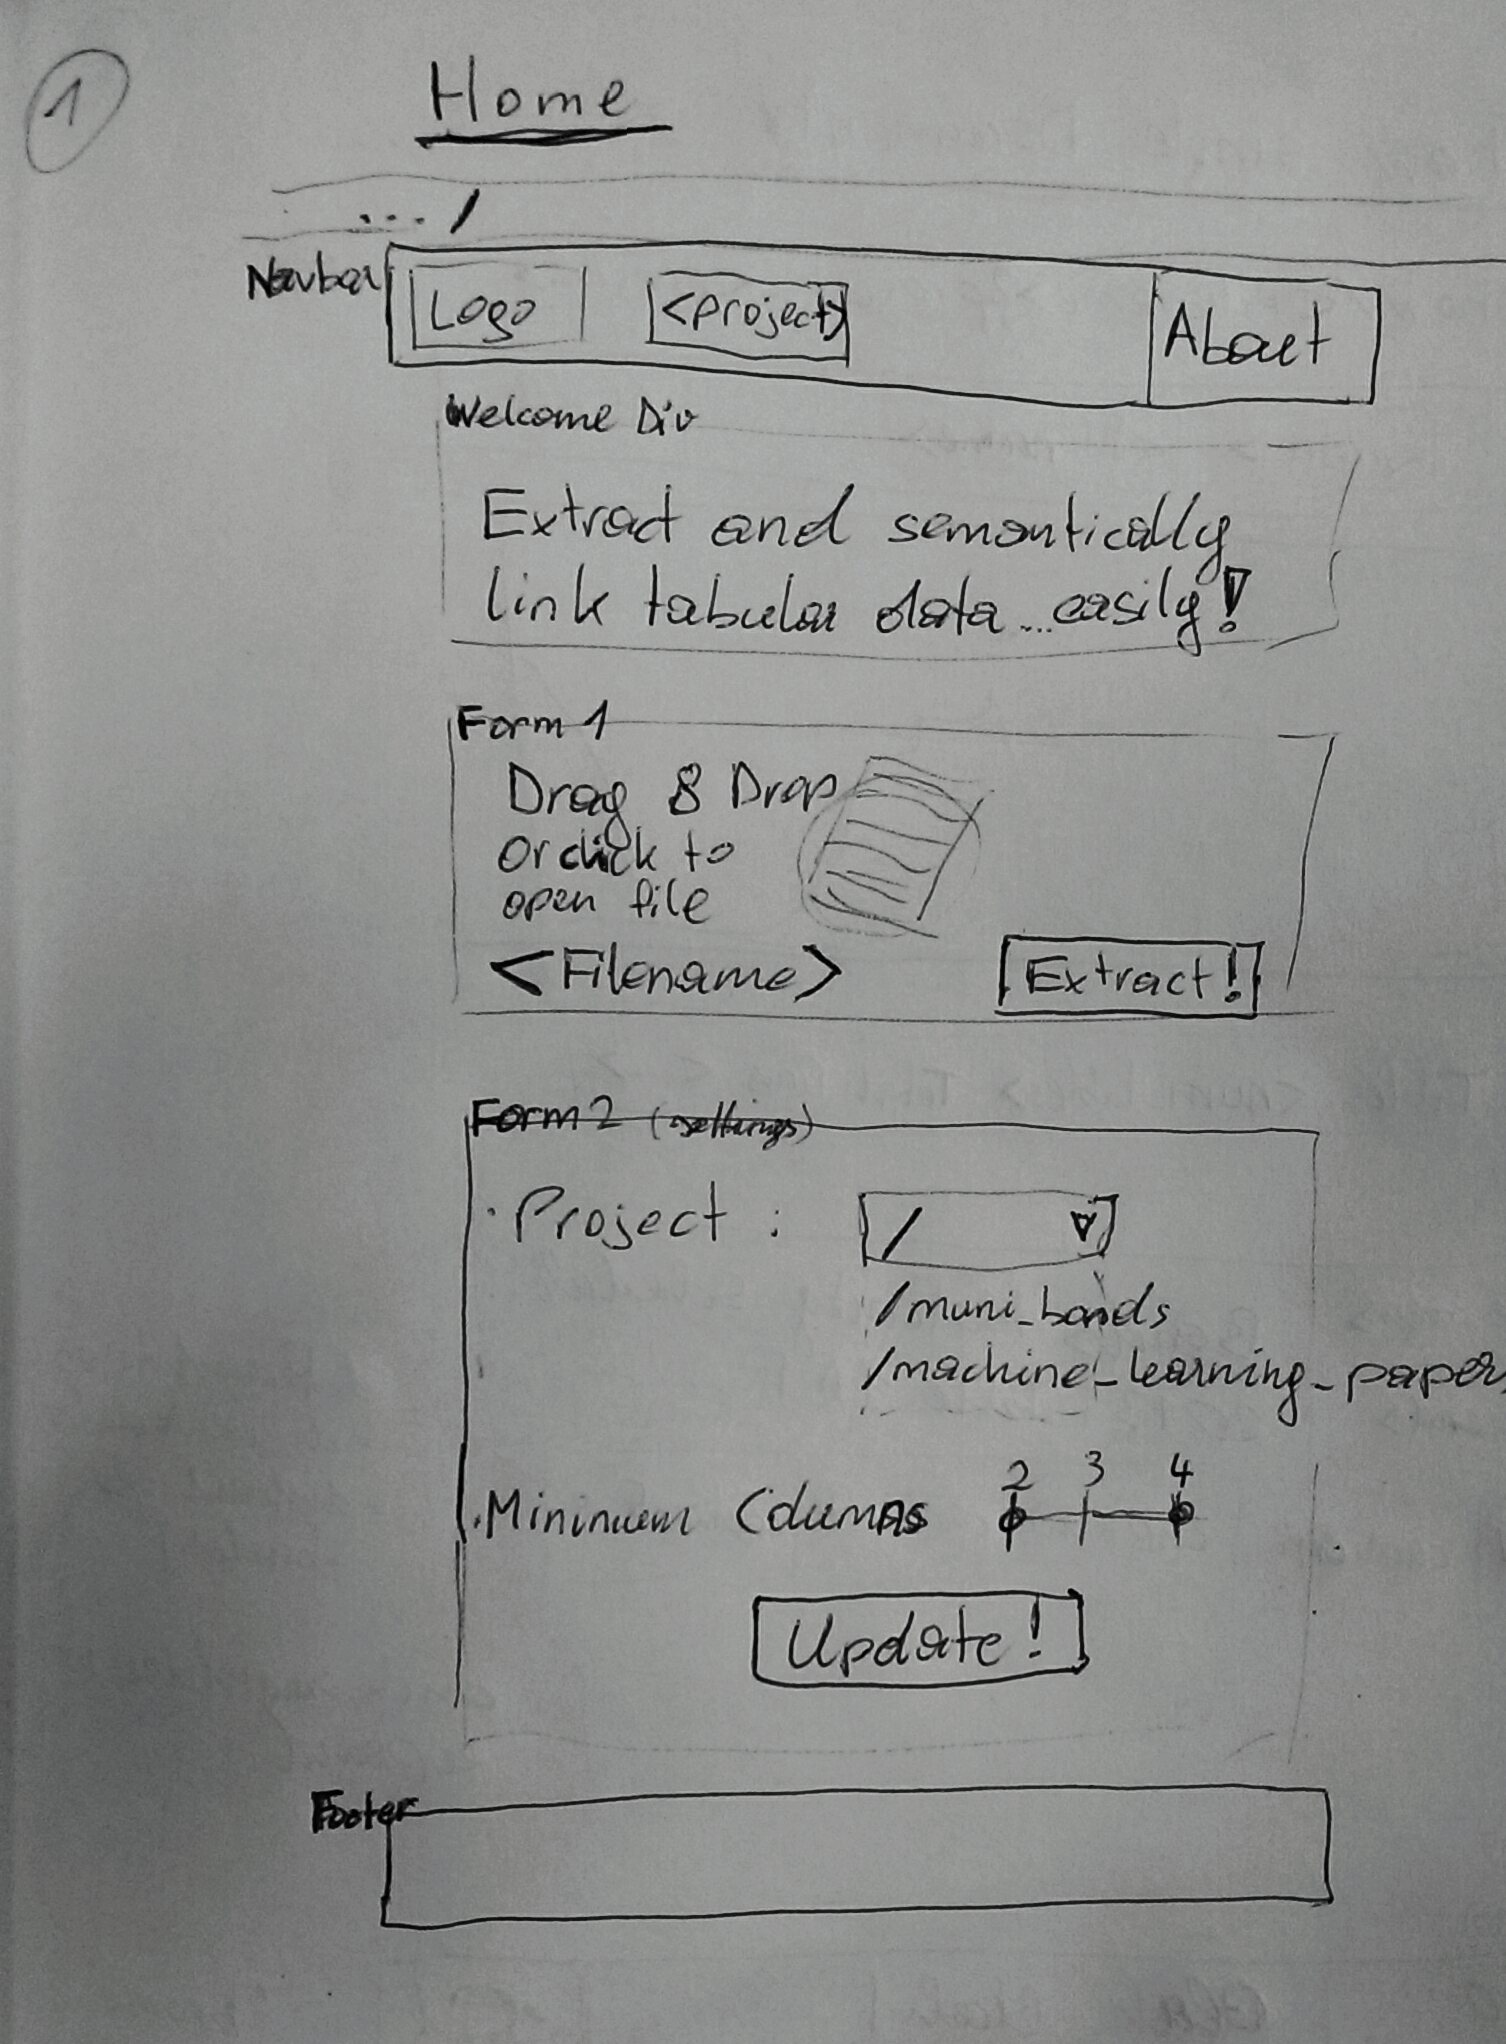 1
Home
... /
Navbar
Logo
<project>
About
Welcome Div
Extract and semantically
link tabular data...easily!
Form 1
Drag & Drop
or click to
open file
<Filename>
Extract!
Form 2 (settings)
· Project :
/
/muni_bonds
/machine_learning_papers
2 3 4
· Minimum Columns
Update!
Footer